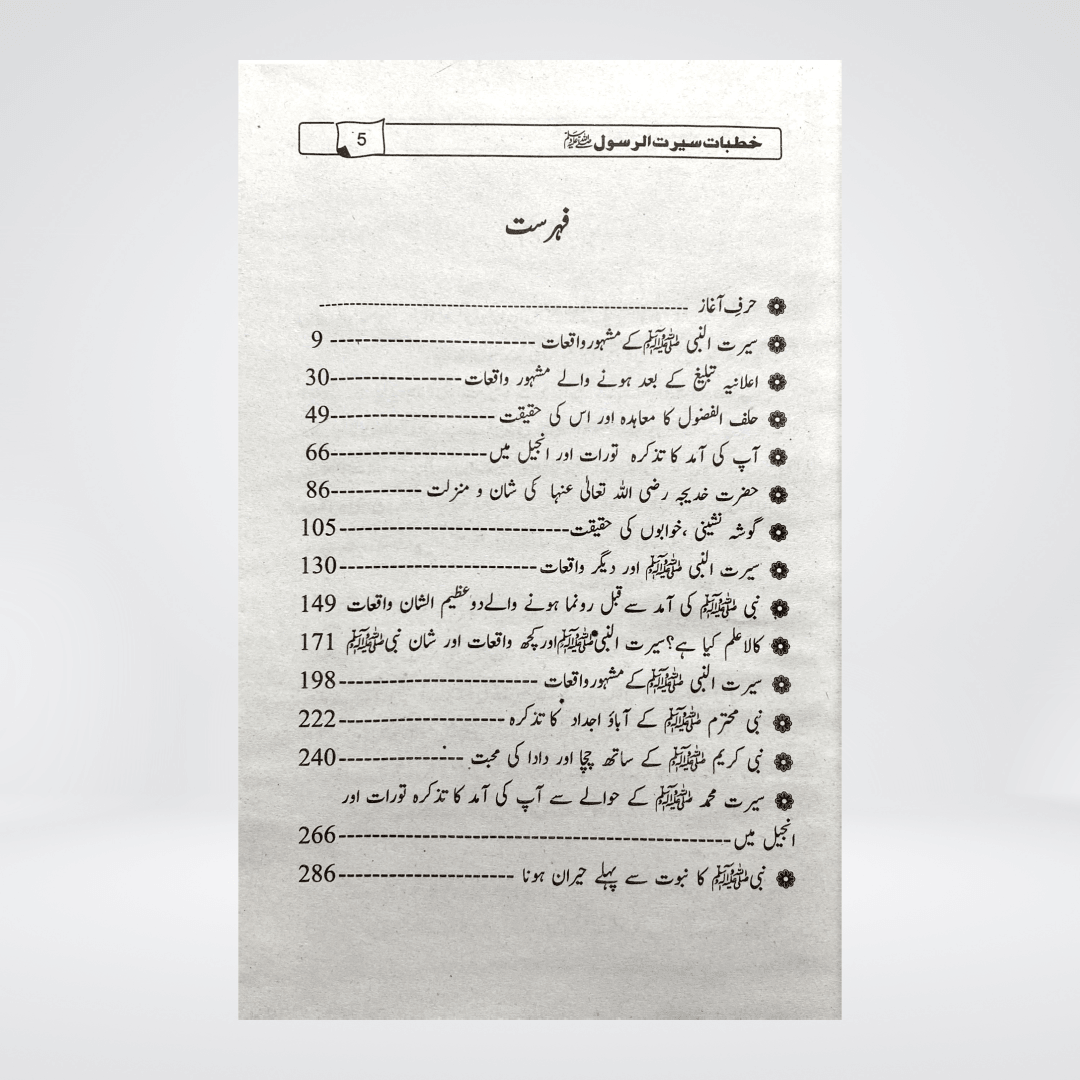 خطبات سیرت الرسول ﷺ 5
فہرست
حرفِ آغاز
سیرت النبی ﷺ کے مشہور واقعات 9
اعلانیہ تبلیغ کے بعد ہونے والے مشہور واقعات 30
حلف الفضول کا معاہدہ اور اس کی حقیقت 49
آپ کی آمد کا تذکرہ تورات اور انجیل میں 66
حضرت خدیجہ رضی اللہ تعالیٰ عنہا کی شان و منزلت 86
گوشہ نشینی ،خوابوں کی حقیقت 105
سیرت النبی ﷺ اور دیگر واقعات 130
نبی ﷺ کی آمد سے قبل رونما ہونے والے دو عظیم الشان واقعات 149
کالا علم کیا ہے؟ سیرت النبی ﷺ اور کچھ واقعات اور شان نبی ﷺ 171
سیرت النبی ﷺ کے مشہور واقعات 198
نبی محترم ﷺ کے آباؤ اجداد کا تذکرہ 222
نبی کریم ﷺ کے ساتھ چچا اور دادا کی محبت 240
سیرت محمد ﷺ کے حوالے سے آپ کی آمد کا تذکرہ تورات اور
انجیل میں 266
نبی ﷺ کا نبوت سے پہلے حیران ہونا 286